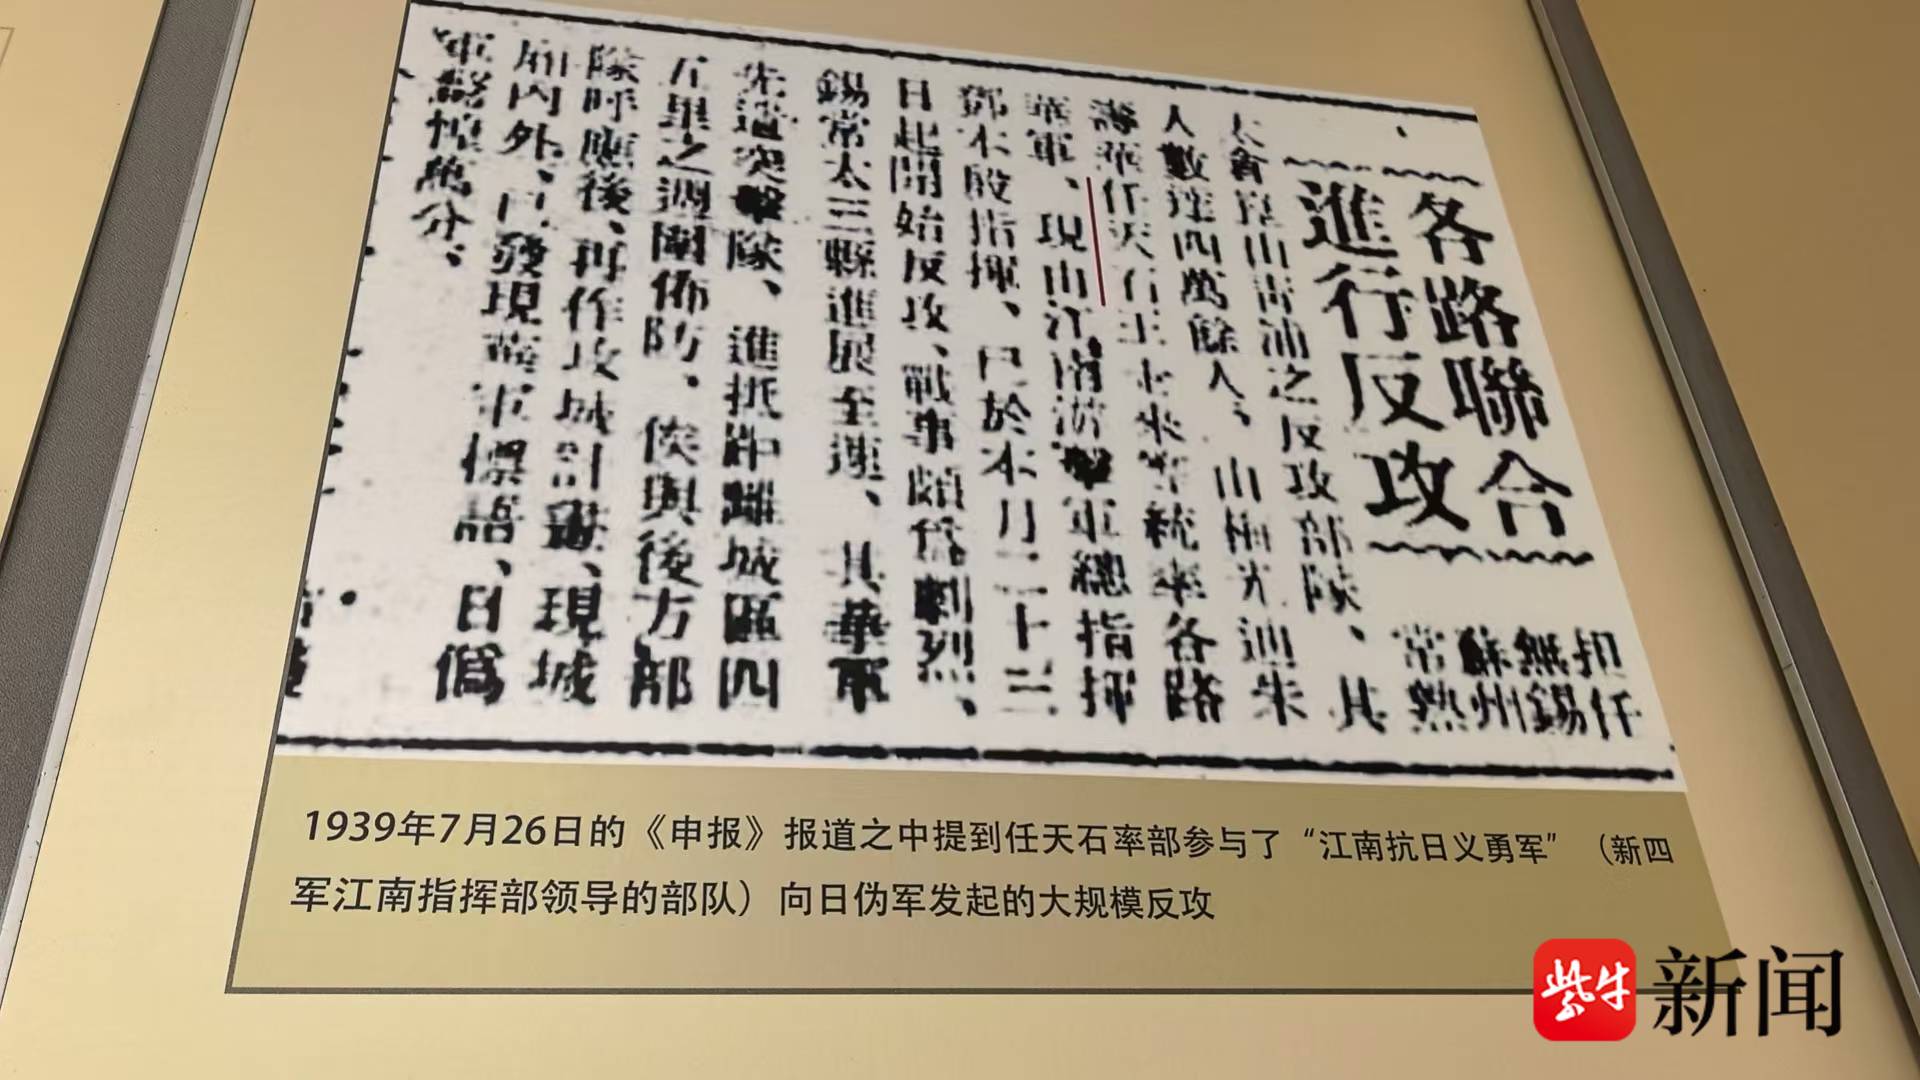 各路聯合
進行反攻
担任
無錫
蘇州
常熟
太倉崑山靑浦之反攻部隊、其
人數達四萬餘人、由梅光迪朱
華任天石王 來 等統率各路
華軍、現由江南游擊軍總指揮
鄧本殷指揮、已於本月二十三
日起開始反攻、戰事頗爲劇烈、
錫常太三縣進展至速、其華軍
先遣突擊隊、進抵距離城區四
五里之週圍佈防、俟與後方部
隊呼應後、再作攻城計劃、現城
廂內外、已發現華軍標語、日僞
軍警惶萬分、
1939年7月26日的《申报》报道之中提到任天石率部参与了“江南抗日义勇军”（新四
军江南指挥部领导的部队）向日伪军发起的大规模反攻
紫牛新闻